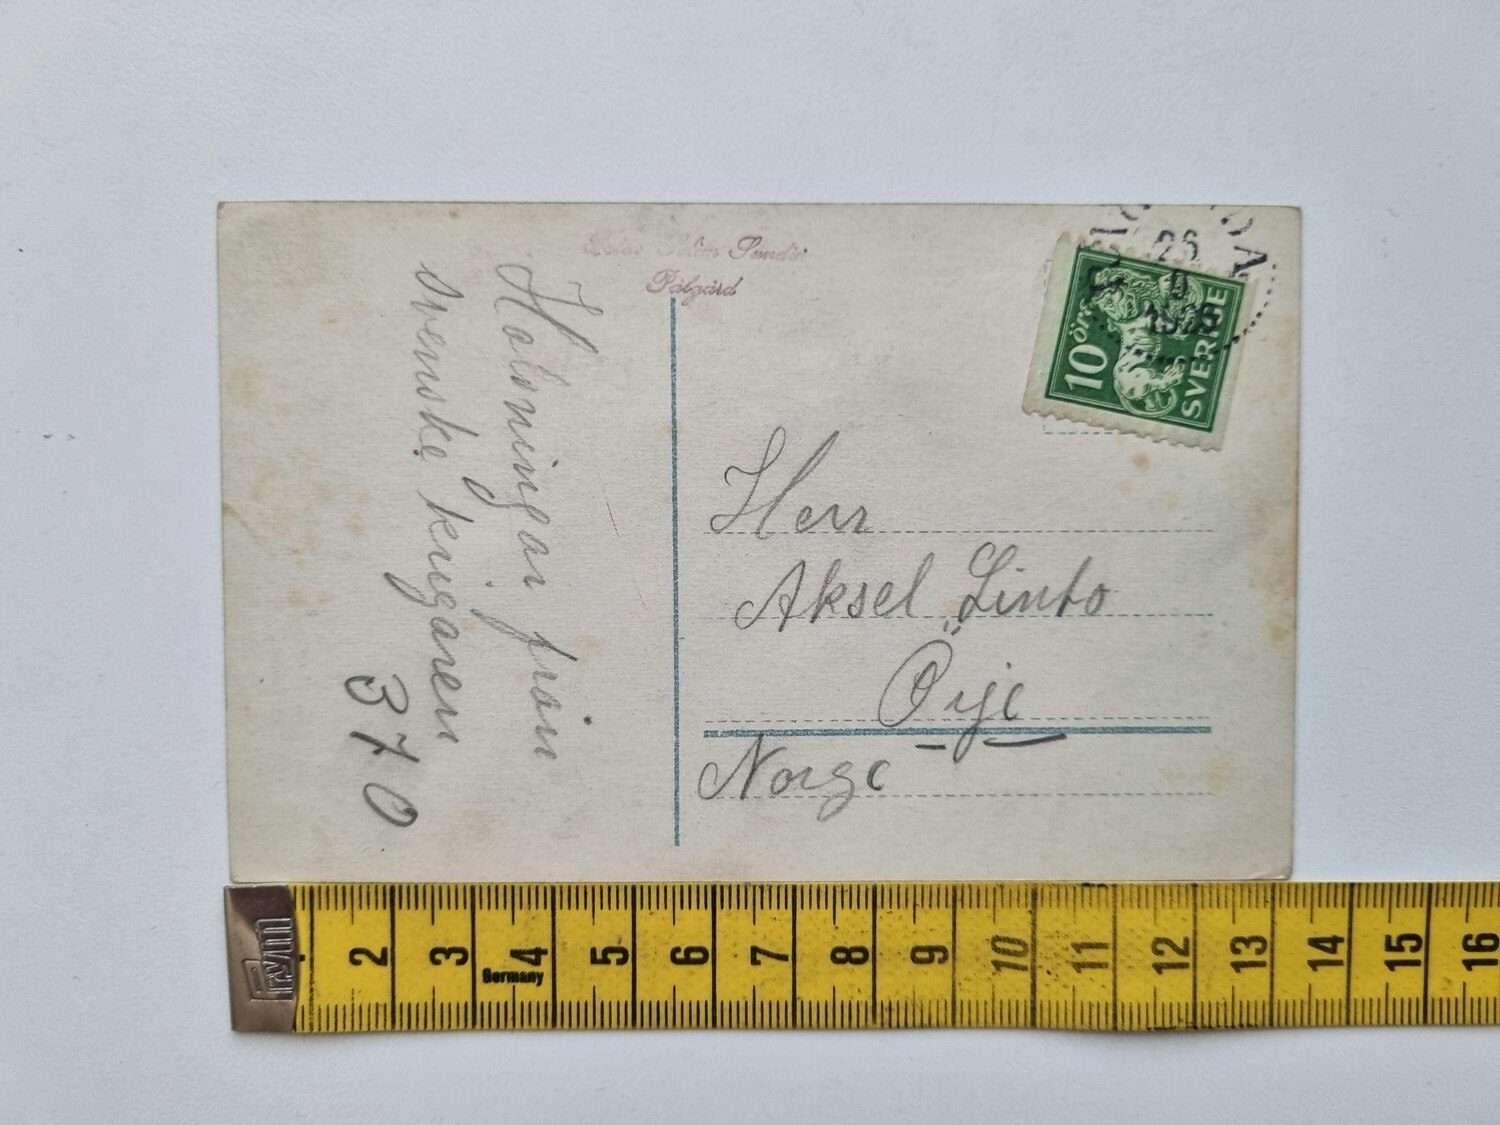 Helsningar från
svenske krigaren
370
Pålgård
26
10 öre
SVERIGE
Herr
Aksel Linto
Örje
Norge
Prym
2 3 4 5 6 7 8 9 10 11 12 13 14 15 16
Germany